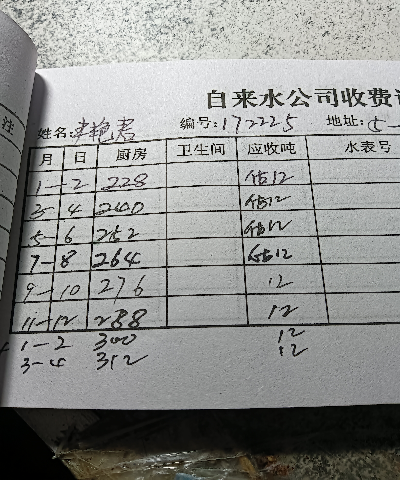 注
自来水公司收费
姓名: 艳君 编号:172225 地址:5-
月 日 厨房 卫生间 应收吨 水表号
1-2 228 估12
3-4 240 估12
5-6 252 估12
7-8 264 估12
9-10 276 12
11-12 288 12
1-2 300 12
3-4 312 12